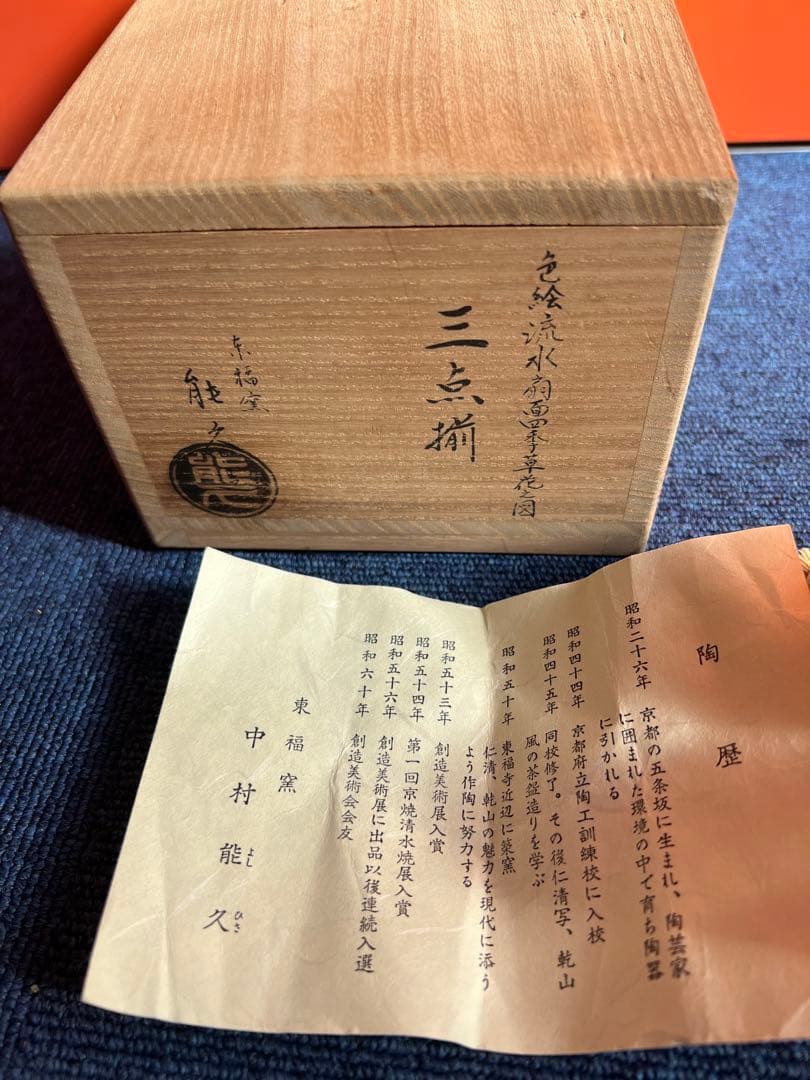 色絵流水扇面四季草花之図
三点揃
東福窯
能久
能久
陶歴
昭和二十六年 京都の五条坂に生まれ、陶芸家
に囲まれた環境の中で育ち陶器
に引かれる
昭和四十四年 京都府立陶工訓練校に入校
昭和四十五年 同校修了。その後仁清写、乾山
風の茶盌造りを学ぶ
昭和五十年 東福寺近辺に築窯
仁清、乾山の魅力を現代に添う
よう作陶に努力する
昭和五十三年 創造美術展入賞
昭和五十四年 第一回京焼清水焼展入賞
昭和五十六年 創造美術展に出品以後連続入選
昭和六十年 創造美術会会友
東福窯
中村能久
よし ひさ